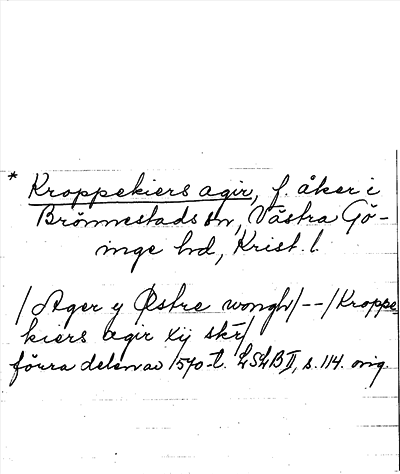 * Kroppekiers agir, f. åker i
Brönnestads sn, Västra Gö-
inge hd, Krist. l.
/Ager y Østre wongh/--/Kroppe-
kiers agir xij skr/
förra delen av 1570-t. LSLB II, s. 114. orig.